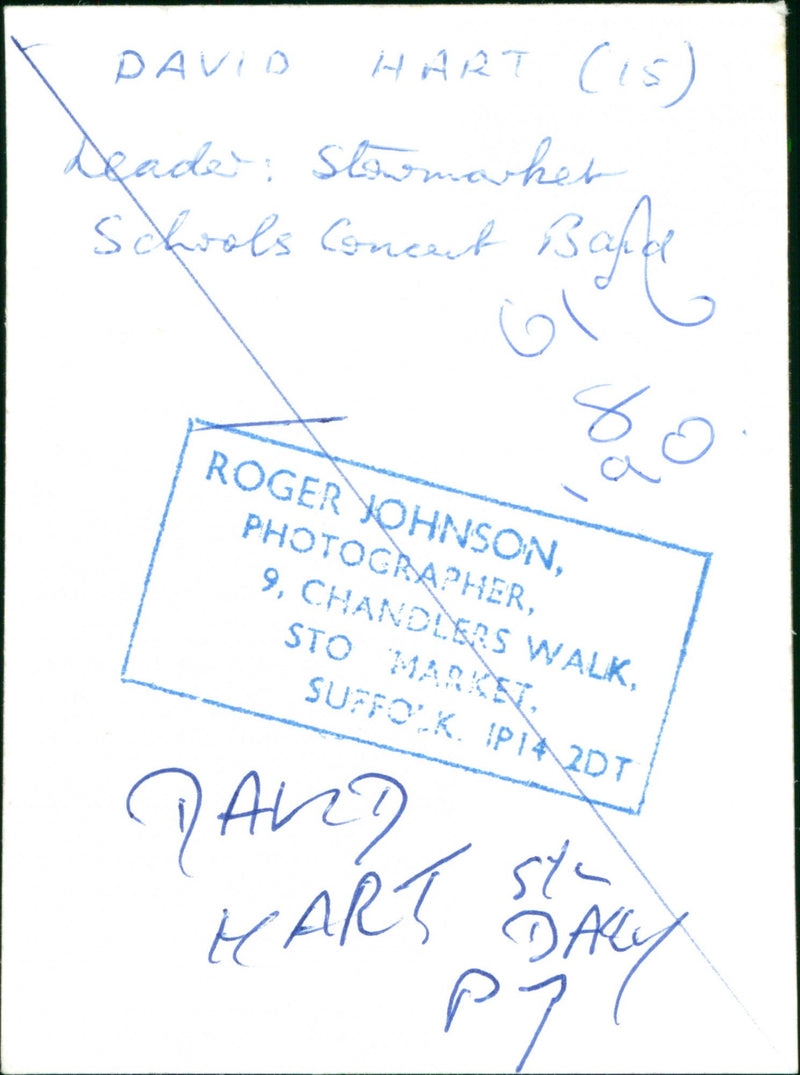 DAVID HART (15)
Leader: Stowmarket
Schools Concert Band
ROGER JOHNSON,
PHOTOGRAPHER,
9, CHANDLERS WALK,
STO MARKET,
SUFFOLK. IP14 2DT
DAVID
HART s/c
DAILY
P7